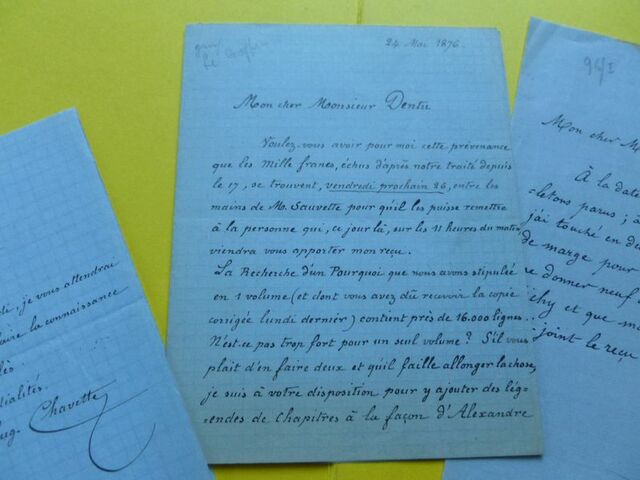 24 Mai 1876.
Mon cher Monsieur Dentu
Voulez-vous avoir pour moi cette prévenance
que les Mille francs, échus d'après notre traité depuis
le 17, se trouvent, vendredi prochain 26, entre les
mains de M. Sauvette pour qu'il les puisse remettre
à la personne qui, ce jour là, sur les 11 heures du matin,
viendra vous apporter mon reçu.
La Recherche d'un Pourquoi que nous avons stipulée
en 1 volume (et dont vous avez dû recevoir la copie
corrigée lundi dernier) contient près de 16.000 lignes.
N'est-ce pas trop fort pour un seul volume? S'il vous
plait d'en faire deux et qu'il faille allonger la chose,
je suis à votre disposition pour y ajouter des lég-
endes de Chapitres à la façon d'Alexandre
je vous attendrai
la connaissance
Chavette
96/I
Mon cher M
À la date
parus; a
j'ai touché en d
de marge pour
donner neuf
et que m
joint le reçu